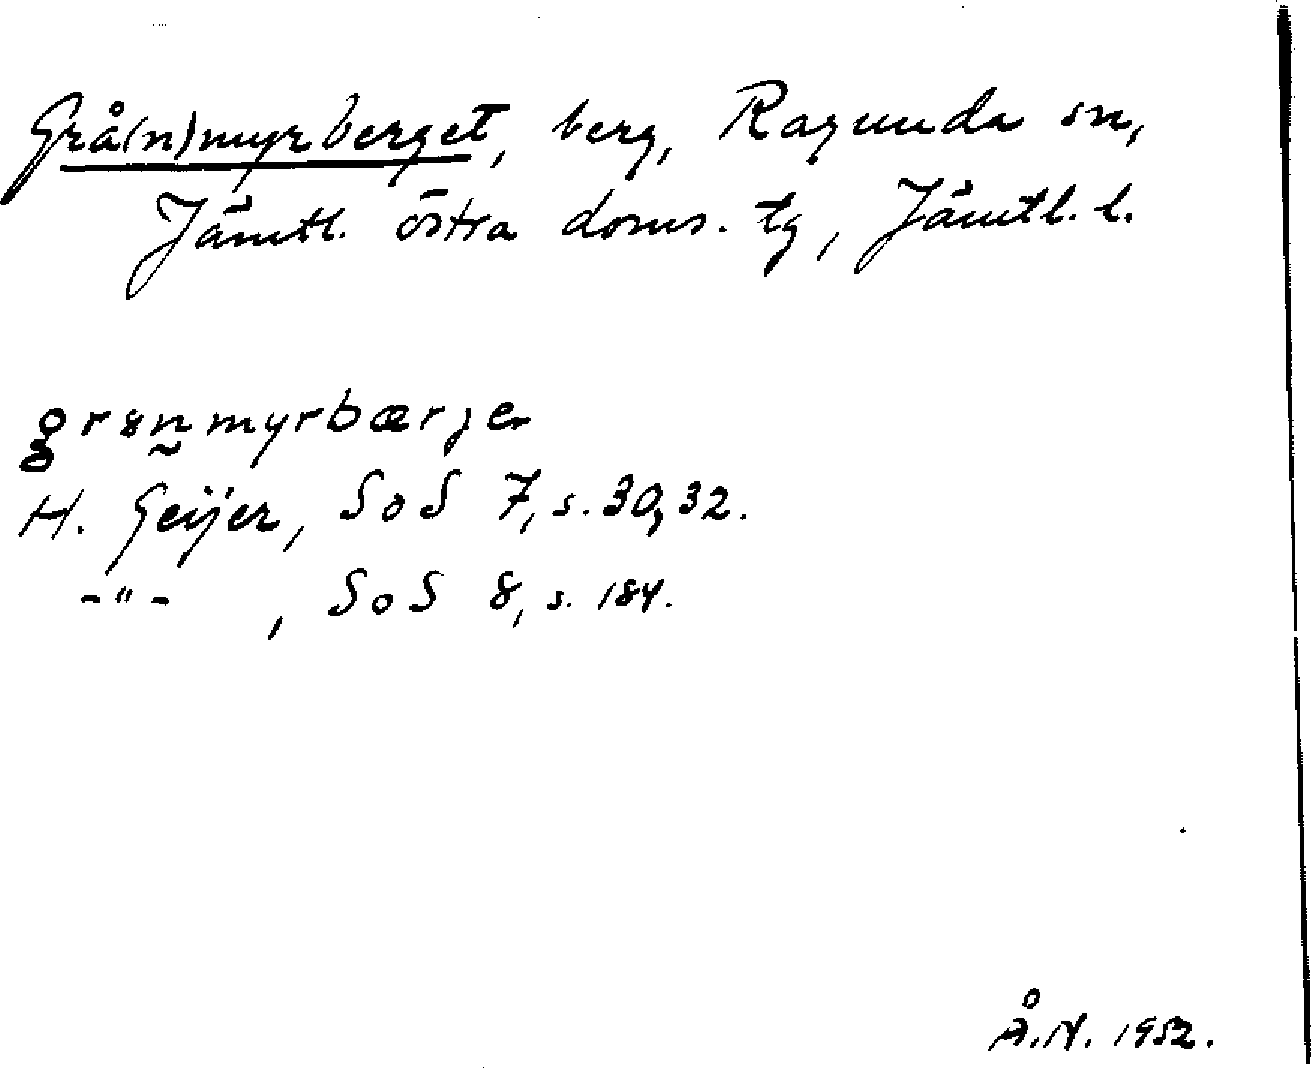 Grå(n)myrberget, berg, Ragunda sn,
Jämtl. östra doms. tg, Jämtl. l.
gr8n̰myrbærje
H. Geijer, SoS 7, s. 30, 32.
-"- , SoS 8, s. 184.
Å.N. 1952.